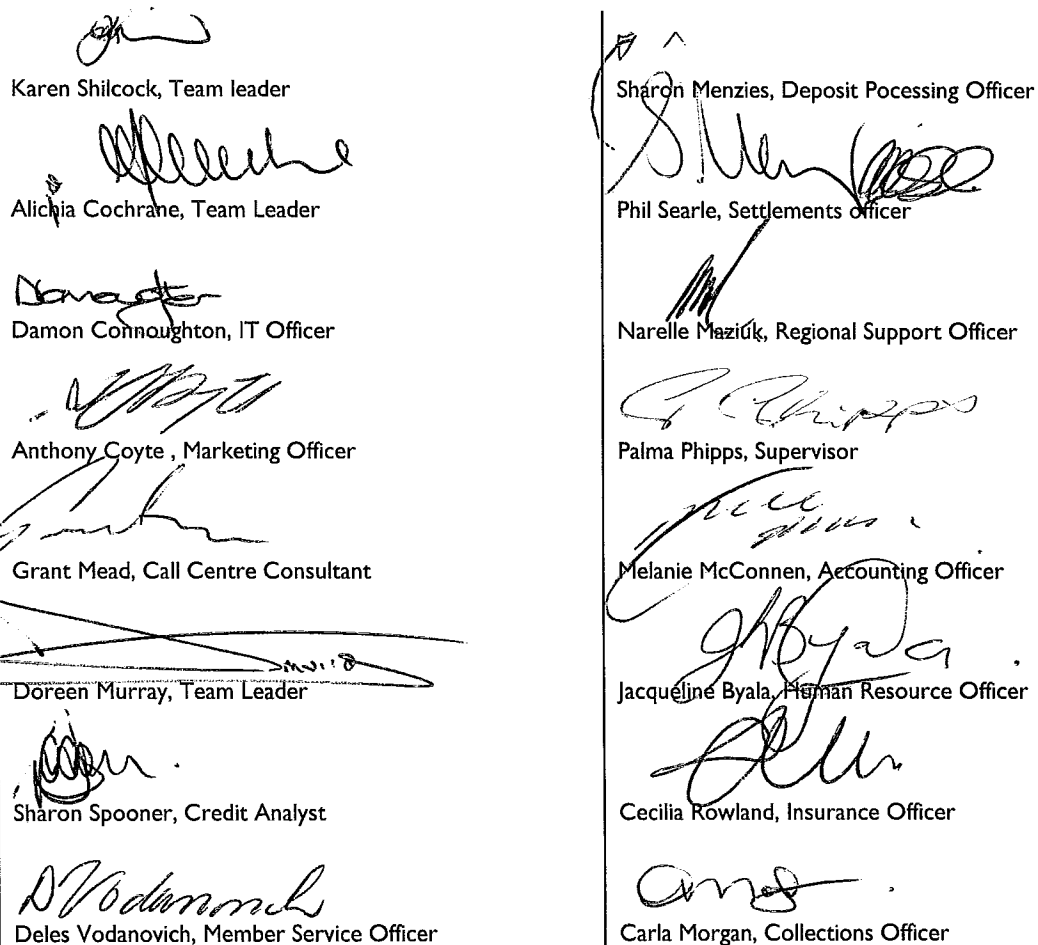 Karen Shilcock, Team leader
Alichia Cochrane, Team Leader
Damon Connoughton, IT Officer
Anthony Coyte , Marketing Officer
Grant Mead, Call Centre Consultant
Doreen Murray, Team Leader
Sharon Spooner, Credit Analyst
D Vodanovich
Deles Vodanovich, Member Service Officer
Sharon Menzies, Deposit Pocessing Officer
Phil Searle, Settlements officer
Narelle Maziuk, Regional Support Officer
P Phipps
Palma Phipps, Supervisor
Melanie McConnen, Accounting Officer
JByala
Jacqueline Byala, Human Resource Officer
Cecilia Rowland, Insurance Officer
Carla Morgan, Collections Officer